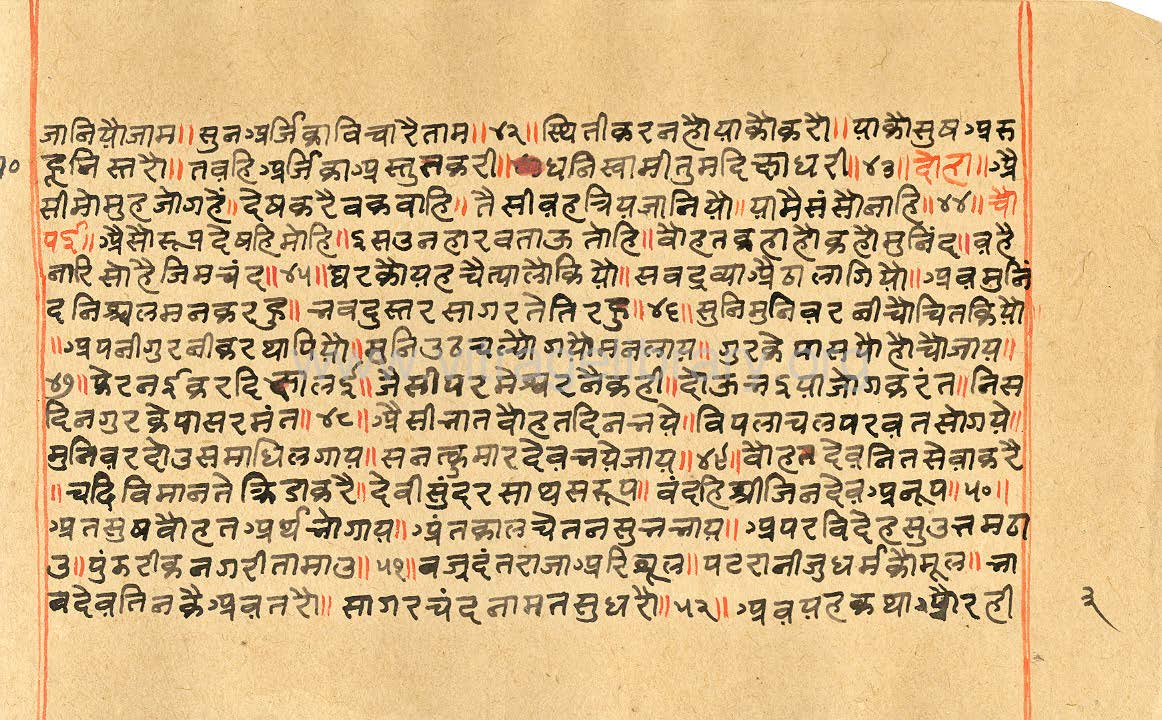 जानियौजाम॥सुनअर्जिकाविचारैताम॥४२॥स्थितीकरनहौयाकौकरो॥याकौसुषअरु
हूनिस्तरो॥तवहिअर्जिकाअस्तुतकरी॥धनिस्वामीतुमदिक्षाधरी॥४३॥दोहा॥अै
सीमोसुहजोगहें॥देषकरैवकवाहि॥तैसीवहत्रियजानियौ॥यामैसंसौनाहि॥४४॥चौ
पई॥अैसौरूपदेषहिमोहि॥इसउनहारवताऊतोहि॥वौहतकहाहौकहौमुनिंद॥वहै
नारिसोहैजिमचंद॥४५॥घरकौयहचैत्यालौकियौ॥सवद्रव्याअैठालागियौ॥अवमुनिं
दनिश्चलमनकरहु॥भवदुस्तरसागरतेतिरहु॥४६॥सुनिमुनिवरनीचौचितकियौ
॥अपनीगुरनीकरथापियौ॥सुनिउठचल्यौगयौमनलाय॥गुरकेपासपोहोचौजाय॥
४७॥फेरनईकरदिक्षालई॥जैसीपरमेश्वरनैकही॥दोऊभइयाजोगकरंत॥निस
दिनगुरकेपासरमंत॥४८॥अैसीभातवौहतदिनभये॥विपलाचलपरवतसोगये॥
मुनिवरदोउसमाधिलगाय॥सनत्कुमारदेवभयेजाय॥४९॥वौहतदेवनितसेवाकरै
॥चढिविमानतेक्रिडाकरै॥देवीसुंदरसाथसरूप॥वंदहिश्रीजिनदेवअनूप॥५०॥
अतसुषवौहतअर्थभोगाय॥अंतकालचैतनसुभभाय॥अपरविदेहसुउत्तमठा
उ॥पुंडरीकनगरीतामाउ॥५१॥वज्रदंतराजाअरिथूल॥पटरानीजुधर्मकौमूल॥भा
वदेवतिनकैअवतरौ॥सागरचंदनामतसुधरौ॥५२॥अवयहकथाऔरही
३